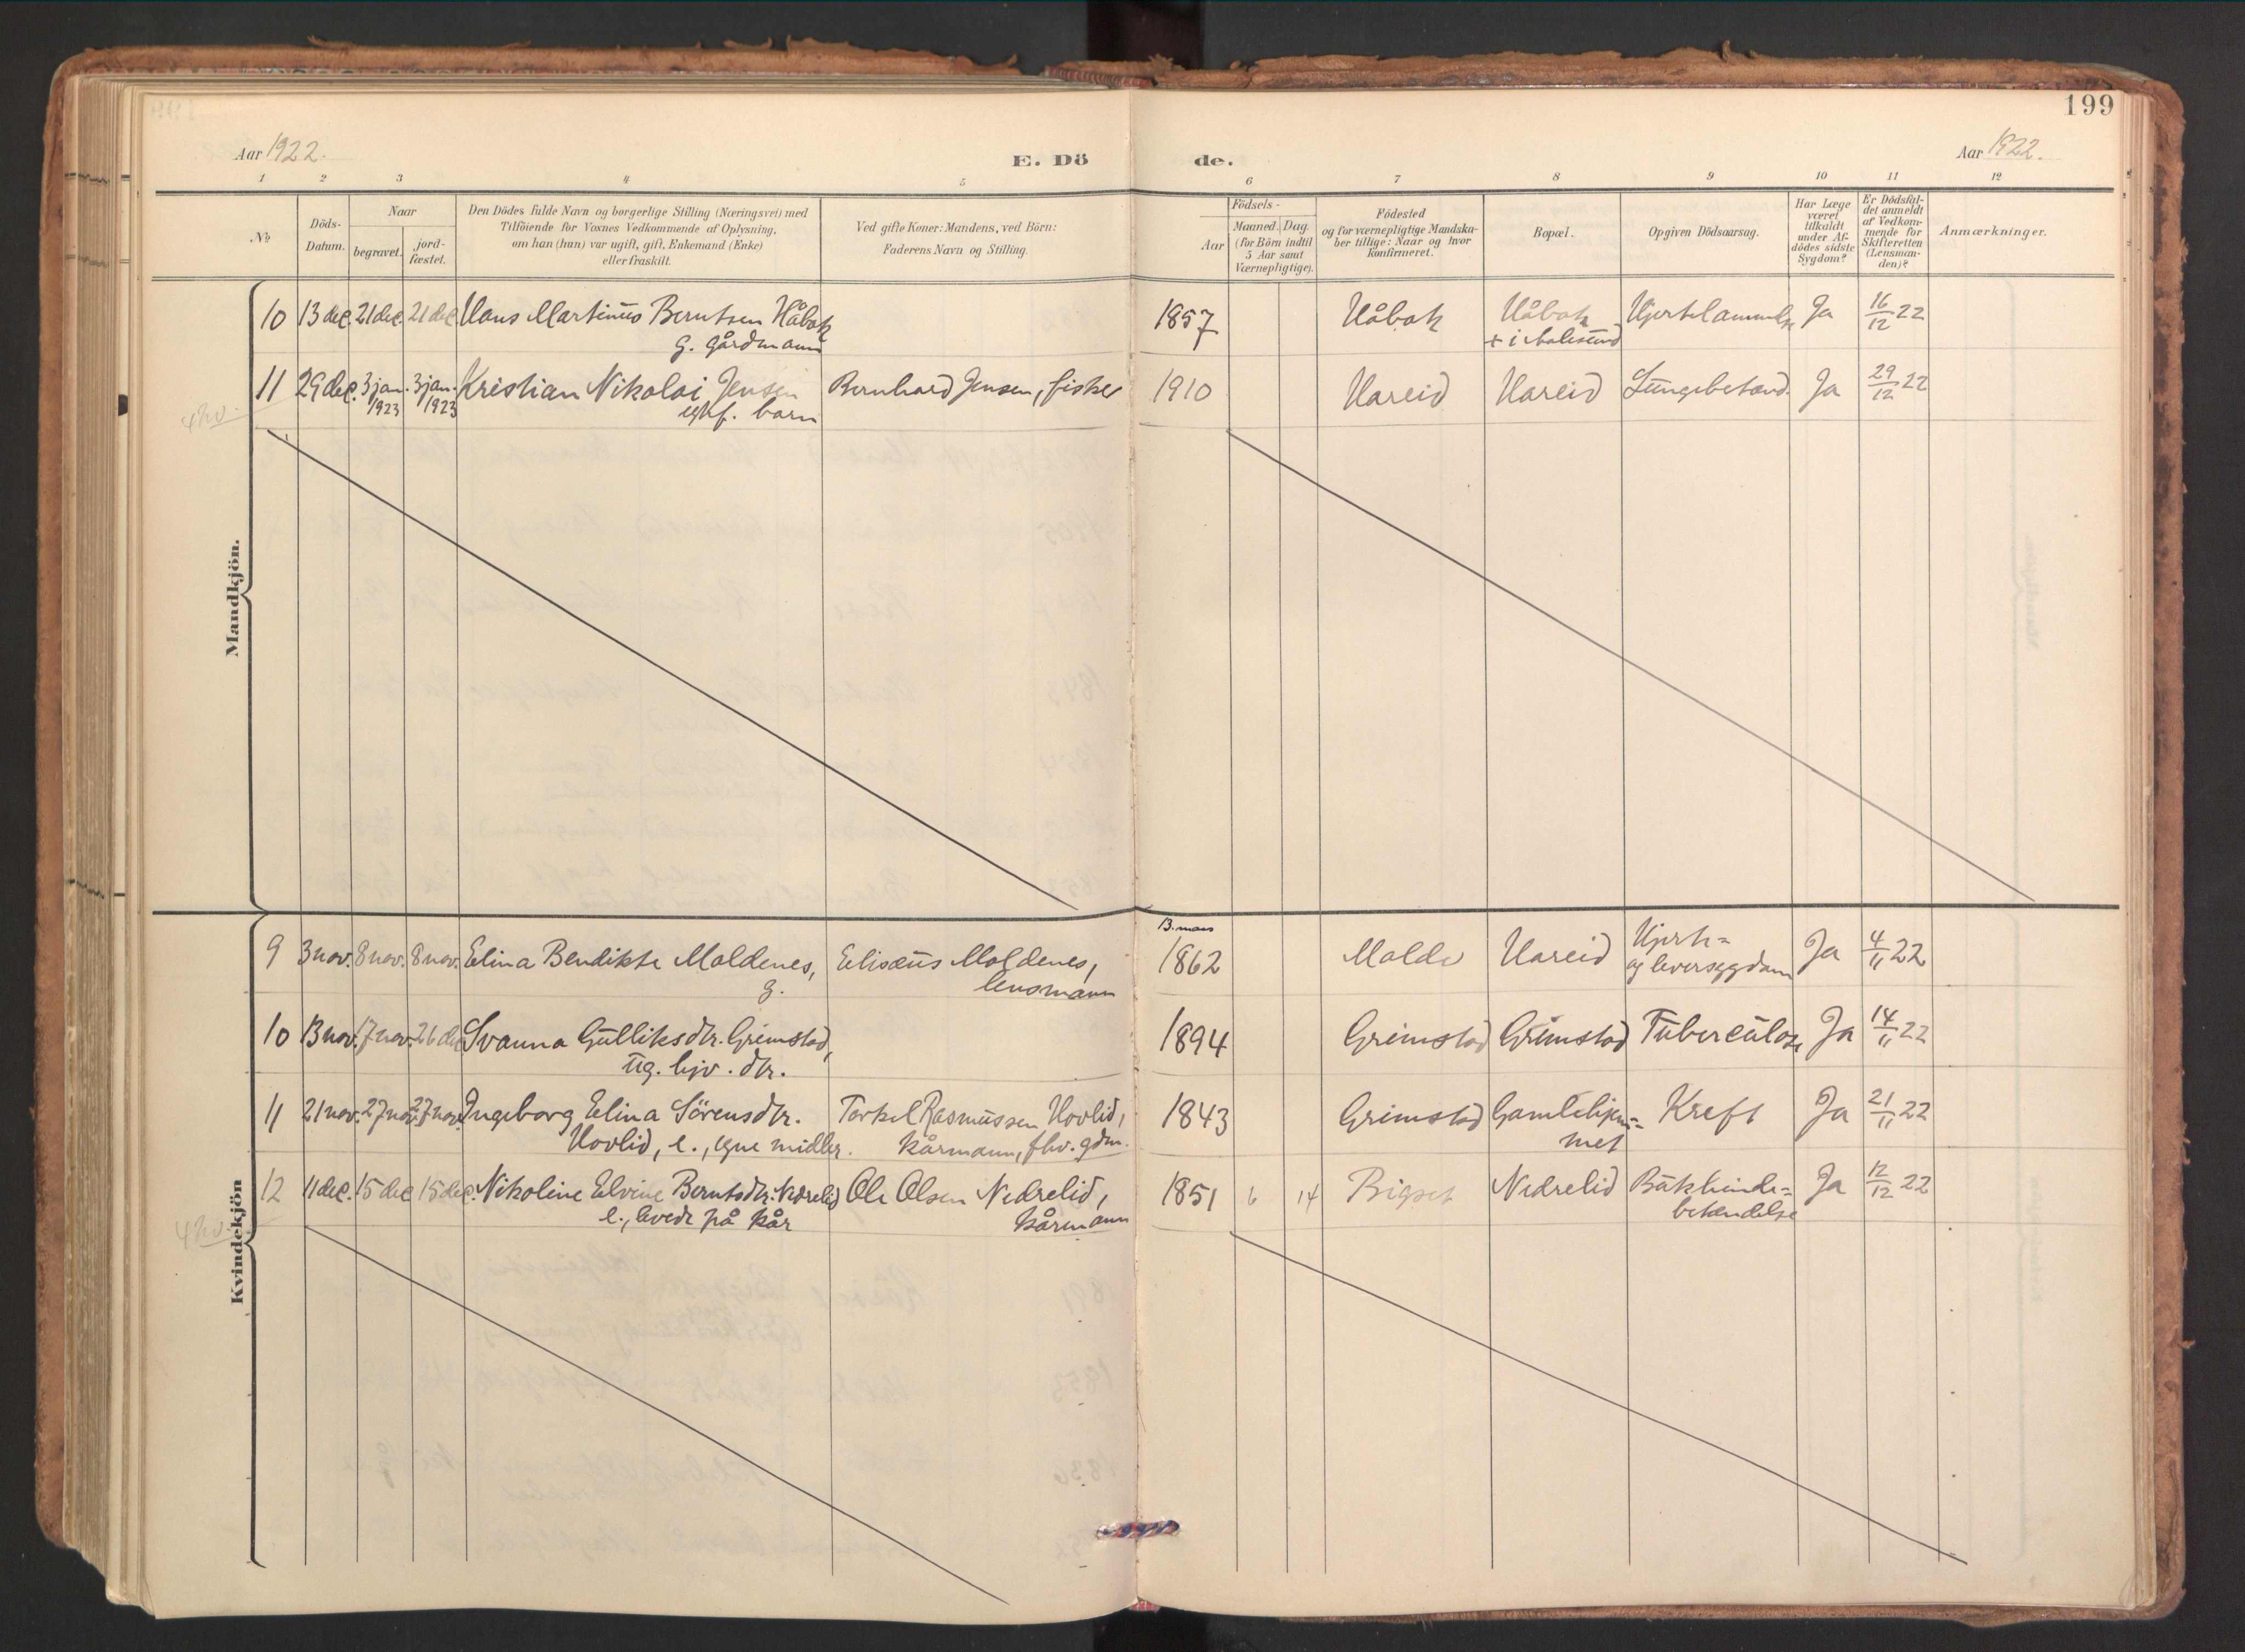 199
Aar 1922.
E. Dö
de.
Aar 1922.
1 2 3 4 5 6 7 8 9 10 11 12
No
Döds-
Datum.
Naar
begravet.
jord-
fæstet.
Den Dödes fulde Navn og borgerlige Stilling (Næringsvei) med
Tilföiende for Voxnes Vedkommende af Oplysning,
om han (hun) var ugift, gift, Enkemand (Enke)
eller fraskilt.
Ved gifte Koner: Mandens, ved Börn:
Faderens Navn og Stilling.
Födsels-
Aar
Maaned.
Dag.
(for Börn indtil
5 Aar samt
Værnepligtige).
Födested
og for værnepligtige Mandska-
ber tillige: Naar og hvor
konfirmeret.
Bopæl.
Opgiven Dödsaarsag.
Har Læge
været
tilkaldt
under Af-
dödes sidste
Sygdom?
Er Dödsfal-
det anmeldt
af Vedkom-
mende for
Skifteretten
(Lensman-
den)?
Anmærkninger.
Mandkjön.
10 13 dec. 21 dec. 21 dec. Hans Martinus Berntsen Håbak 1857 Håbak Håbak Hjertelammelse Ja 16/12 22
g. gårdmann + i Aalesund
11 29 dec. 3 jan. 3 jan. Kristian Nikolai Jensen Bernhard Jensen, fisker 1910 Hareid Hareid Lungebetænd. Ja 29/12 22
1923 1923 barn
Kvindekjön
B. mars
9 3 nov. 8 nov. 8 nov. Elina Bendikte Moldenes, Elisæus Moldenes, 1862 Molde Hareid Hjerte= Ja 4/11 22
g. lensmann og leversygdom
10 13 nov. 17 nov. 26 dec Svanna Gulliksdtr. Grimstad, 1894 Grimstad Grimstad Tuberculose Ja 14/11 22
ug. hjv. dtr.
11 21 nov. 27 nov. 27 nov. Ingeborg Elina Sörensdtr. Torkel Rasmussen Hovlid, 1843 Grimstad Gamlehjem= Kreft Ja 21/11 22
Hovlid, e., egne midler. kårmann, fhv. gdm. met
12 11 dec. 15 dec 15 dec. Nikoline Elvine Berntsdtr. Nedrelid Ole Olsen Nedrelid, 1851 6 14 Bigset Nedrelid Bukhinde= Ja 12/12 22
e., levede på kår kårmann betændelse